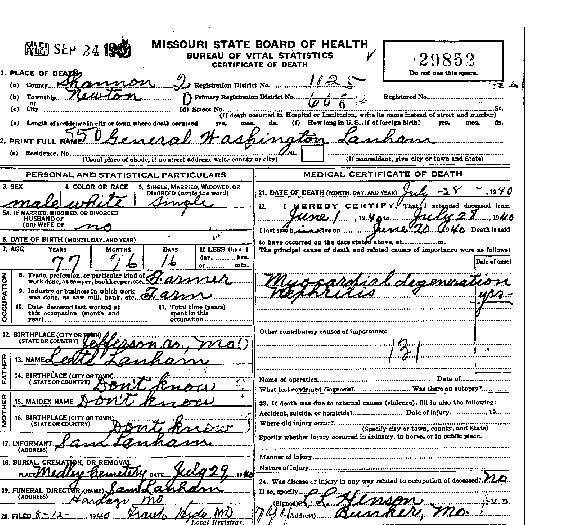 FILED SEP 24 1940
MISSOURI STATE BOARD OF HEALTH
BUREAU OF VITAL STATISTICS
CERTIFICATE OF DEATH
29852
Do not use this space.
1. PLACE OF DEATH
(a) County Shannon Registration District No. 1125
(b) Township Newton Primary Registration District No. Registered No.
or
(c) City (d) Street No. St.
(If death occurred in Hospital or Institution, write its name instead of street and number)
(e) Length of residence in city or town where death occurred yrs. mos. ds. (f) How long in U. S., if of foreign birth? yrs. mos. ds.
2. PRINT FULL NAME General Washington Lanham
(a) Residence, No. St.
(Usual place of abode, if no street address, write county or city) (If nonresident, give city or town and State)
PERSONAL AND STATISTICAL PARTICULARS
3. SEX 4. COLOR OR RACE 5. SINGLE, MARRIED, WIDOWED, OR DIVORCED (write the word)
male white single
5A. IF MARRIED, WIDOWED OR DIVORCED
HUSBAND OF
(OR) WIFE OF no
6. DATE OF BIRTH (MONTH, DAY, AND YEAR)
7. AGE YEARS MONTHS DAYS If LESS than 1
day, hrs.
or min.
77 16
8. Trade, profession, or particular kind of
work done, Farmer
9. Industry or business in which work
was done, as saw mill, bank, etc. Farm
10. Date deceased last worked at
this occupation (month and
year)
11. Total time (years)
spent in this
occupation
OCCUPATION
12. BIRTHPLACE (CITY OR TOWN)
(STATE OR COUNTRY) Jefferson Co, Mo
FATHER
13. NAME Lanham
14. BIRTHPLACE (CITY OR TOWN)
(STATE OR COUNTRY) Don't know
MOTHER
15. MAIDEN NAME Don't know
16. BIRTHPLACE (CITY OR TOWN)
(STATE OR COUNTRY) Don't know
17. INFORMANT Sam Lanham
(ADDRESS)
18. BURIAL, CREMATION, OR REMOVAL
PLACE Medley Cemetery DATE July 29, 1940
19. FUNERAL DIRECTOR Sam Lanham
(ADDRESS) Mo
20. FILED 8-12- 1940
Local Registrar.
MEDICAL CERTIFICATE OF DEATH
21. DATE OF DEATH (MONTH, DAY, AND YEAR) July - 28 - 1940
22. I HEREBY CERTIFY, That I attended deceased from
June 1, 1940, to July 28, 1940
I last saw alive on June 20, 1940 Death is said
to have occurred on the date stated above, at m.
The principal cause of death and related causes of importance were as follows:
Date of onset
Myocardial degeneration
Nephritis yrs
Other contributory causes of importance:
131
Name of operation Date of
What test confirmed diagnosis? Was there an autopsy?
23. If death was due to external causes (violence), fill in also the following:
Accident, suicide, or homicide? Date of injury 19
Where did injury occur?
(Specify city or town, county, and State)
Specify whether injury occurred in industry, in home, or in public place.
Manner of injury
Nature of injury
24. Was disease or injury in any way related to occupation of deceased? no
If so, specify
(Signed) Henson M. D.
(Address) Bunker, Mo.